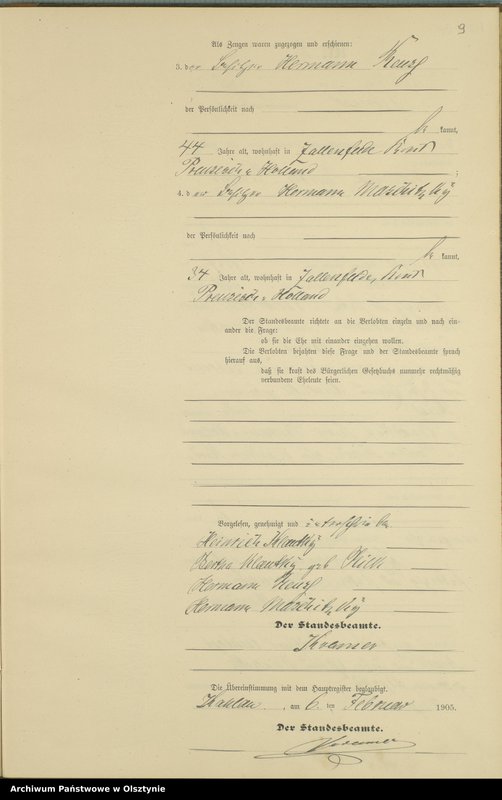 9
Als Zeugen waren zugezogen und erschienen:
3. der Besitzer Hermann
der Persönlichkeit nach
be kannt,
44 Jahre alt, wohnhaft in Fallenfelde, Kreis
Preussisch Holland ;
4. der Besitzer Hermann Maschitzky
der Persönlichkeit nach
be kannt,
34 Jahre alt, wohnhaft in Fallenfelde, Kreis
Preussisch Holland
Der Standesbeamte richtete an die Verlobten einzeln und nach ein-
ander die Frage:
ob sie die Ehe mit einander eingehen wollen.
Die Verlobten bejahten diese Frage und der Standesbeamte sprach
hierauf aus,
daß sie kraft des Bürgerlichen Gesetzbuchs nunmehr rechtmäßig
verbundene Eheleute seien.
Vorgelesen, genehmigt und unterschrieben
Heinrich Klautky
Bertha Klautky geb.
Hermann
Hermann Maschitzky
Der Standesbeamte.
Kramer
Die Übereinstimmung mit dem Hauptregister beglaubigt.
, am 6. ten Februar 1905.
Der Standesbeamte.
Kramer
Archiwum Państwowe w Olsztynie